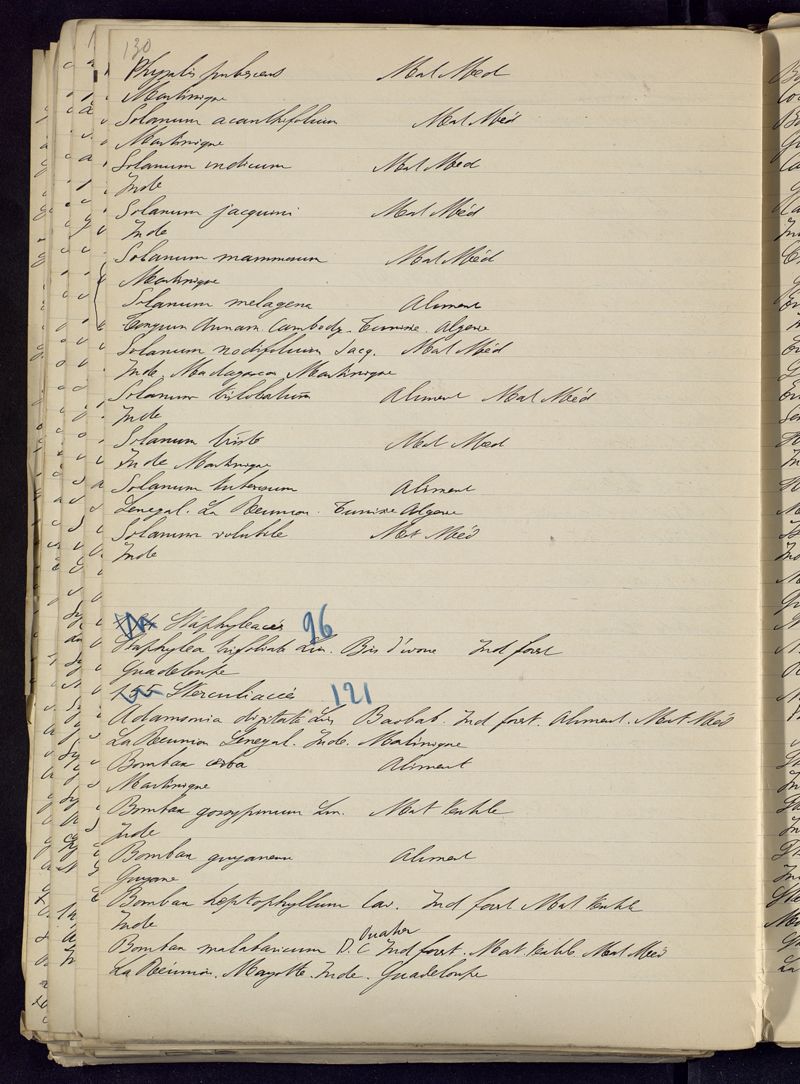 130
Physalis pubescens Mat Méd
Martinique
Solanum acanthifolium Mat Méd
Martinique
Solanum indicum Mat Méd
Inde
Solanum jacquini Mat Méd
Inde
Solanum mammosum Mat Méd
Martinique
Solanum melagena Aliment
Tonquin Annam. Cambodg. Tunisie. Algerie
Solanum nodifolium Jacq. Mat Méd
Inde. Madagascar Martinique
Solanum trilobatum Aliment Mat Méd
Inde
Solanum triste Mat Méd
Inde Martinique
Solanum tuberosum Aliment
Senegal. La Reunion. Tunisie Algerie
Solanum volubile Mat Méd
Inde
Staphyleacés 96
Staphylea trifoliata Lin. Bois d'ivoire Ind forest
Guadeloupe
155 Sterculiacés 121
Adamsonia digitata Lin Baobab. Ind forst. Aliment. Mat Méd
La Reunion Senegal. Inde. Martinique
Bombax ceiba Aliment
Martinique
Bombax gossypinum Lin. Mat textile
Inde
Bombax guyanense Aliment
Guyane
Bombax heptaphyllum Cav. Ind forst Mat textile
Inde
Bombax malabaricum D.C Ouatier Ind forst. Mat. textile. Mat Méd
La Réunion. Mayotte. Inde. Guadeloupe